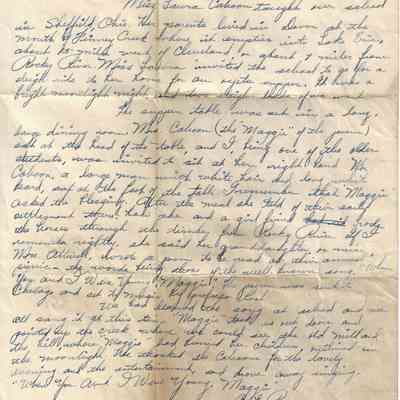 Miss Laura Cahoon taught our school
in Sheffield, Ohio. Her parents lived in Dover at the
mouth of Creek where it empties into Lake Erie,
about miles west of Cleveland or about 7 miles from
Rocky River. Miss Laura invited the school to go for a
sleigh ride to her home for an oyster supper. It was a
bright moonlight night and
The supper table was set in a long,
large dining room. Mrs. Cahoon (the "Maggie" of the poem)
sat at the head of the table, and I, being one of the older
students, was invited to sit at her right hand. Mr.
Cahoon, a large man with white hair and long white
beard, sat at the foot of the table. I remember that Maggie
asked the blessing. After the meal she told of their early
settlement there, how she and a girl friend rode
the horses through the timber from Rocky River. If I
remember rightly, she said her granddaughter or niece,
Mrs. wrote a poem to be read at their
the words being those of the well known song, "When
You and I Were Young, Maggie". The poem was
Chicago and set to music by
We had learned the song at school and we
all sang it at this time. Maggie took us out doors and
pointed by the creek where we could see the old mill and
the hill where Maggie had buried her children, outlined in
the moonlight. We thanked the Cahoons for the lovely
evening and the entertainment, and drove away singing,
"When You And I Were Young, Maggie".